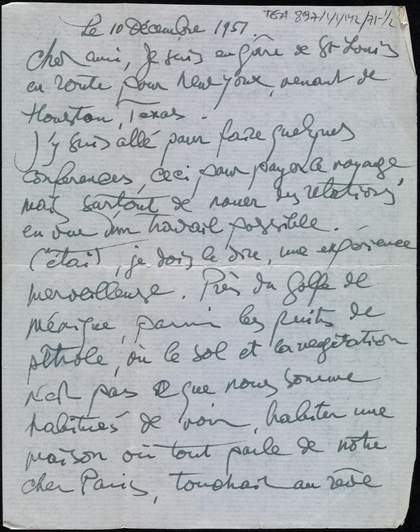 TGA 897/1/1/42/71-1/2
Le 10 Décembre 1951
Cher ami, Je suis en gare de St Louis
en route pour New york, venant de
Houston, Texas.
J'y suis allé pour faire quelques
Conférences, ceci pour payer le voyage,
mais surtout de nouer des relations,
en vue d'un travail possible.
C'était, je dois le dire, une expérience
merveilleuse. Près du golfe de
Méxique, parmi les puits de
pétrole, où le sol et la végétation
n'est pas ce que nous somme
habitués de voir, habiter une
maison où tout parle de notre
cher Paris, touchait au rêve